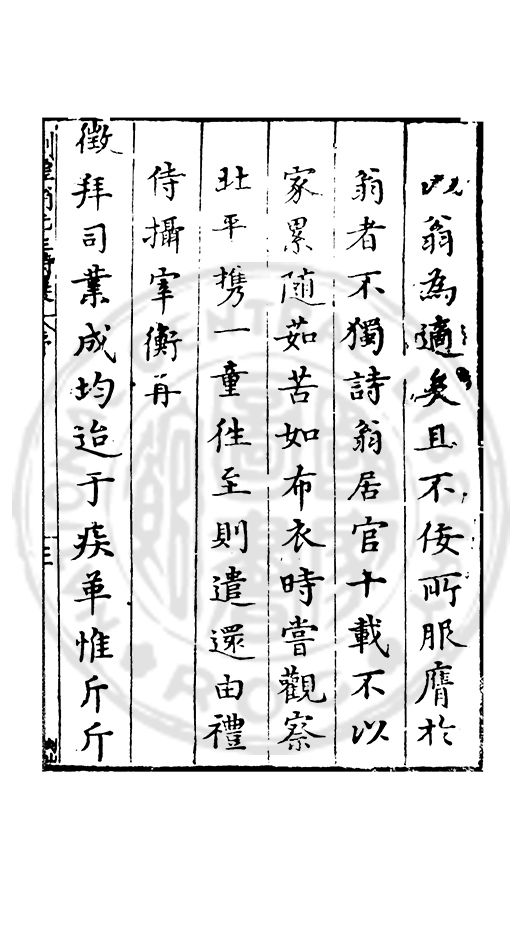 以翁為適矣且不佞所服膺於
翁者不獨詩翁居官十載不以
家累隨茹苦如布衣時嘗觀察
北平攜一童徃至則遣還由禮
侍攝宰衡再
徵拜司業成均迨于疾革惟斤斤